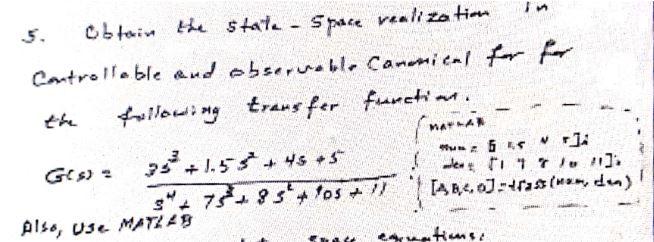 5. Obtain the state - Space realization in
Controllable and observable Canonical for for
the following transfer function.
MATLAB
G(s) = 3s³ + 1.5s² + 4s + 5
s⁴ + 7s³ + 8s² + 10s + 11
[A,B,C,D]=tf2ss(num, den)
Also, Use MATLAB
space equations: